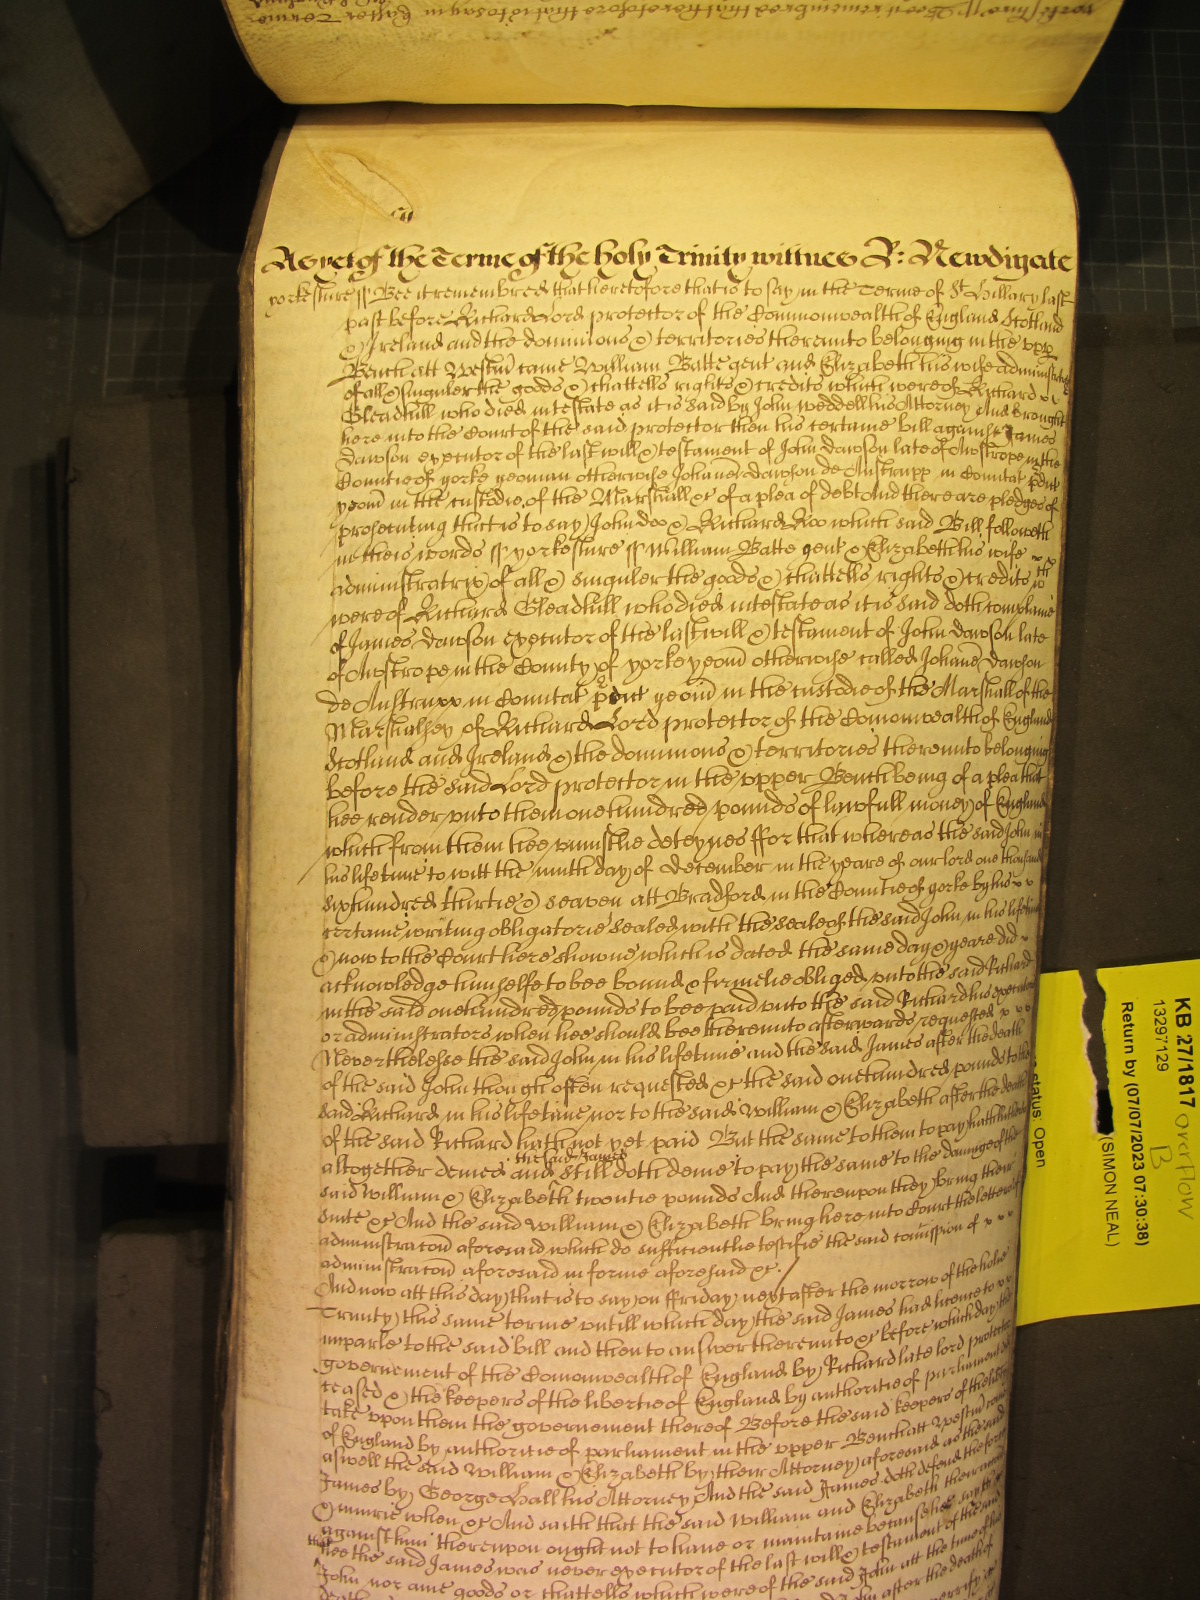 As yet of the Terme of the holy Trinity witnes R: Newdigate
yorkeshire ss Bee it remembred that heretofore that is to say in the Terme of St Hillary last
past before Richard Lord protector of the Commonwealth of England Scotland
& Ireland and the dominions & territories thereunto belonging in the upp
Bench att Westm came William Batte gent and Elizabeth his wife administratrix
of all & singuler the goods & chattells rights & creditts which were of Richard
Gleadhill who died intestate as it is said by John Weddell his Attorney And brought
here into the Court of the said protector then his certame bill against James
Dawson executor of the last will & testament of John Dawson late of Awstrope in the
Countie of yorke yeoman otherwise Johanes Dawson de Austrapp in Comitat
yeom in the custodie of the Marshall &c of a plea of debt And there are pledges of
prosecuting that is to say John doo & Richard Roo which said Bill followeth
in theis words ss yorkeshire ss William Batte gent & Elizabeth his wife
administratrix of all & singuler the goods & chattells rights & creditts wch
were of Richard Gleadhill who died intestate as it is said doth complaine
of James Dawson executor of the last will & testament of John Dawson late
of Awstrope in the County of yorke yeom otherwise called Johanes Dawson
de Austrapp in Comitat yeom in the custodie of the Marshall of the
Marshalsey of Richard Lord protector of the Comonwealth of England
Scotland and Ireland & the dominions & territories thereunto belonging
before the said Lord protector in the upper Bench being of a plea that
hee render unto them one hundred pounds of lawfull money of England
which from them hee uniustlie deteynes ffor that whereas the said John in
his lifetime to witt the ninth day of December in the yeare of our lord one thousand
sixhundred thirtie & seaven att Bradford in the Countie of yorke by his
certaine writing obligatorie sealed with the seale of the said John in his lifetime
& now to the Court here showne which is dated the same day & yeare did
acknowledge himselfe to bee bound & firmelie obliged unto the said Richard
in the said one hundred pounds to bee paid unto the said Richard his executors
or administrators when hee should bee thereunto afterwards requested
Neverthelesse the said John in his lifetime and the said James after the death
of the said John though often requested &c the said one hundred pounds to the
said Richard in his lifetime nor to the said William & Elizabeth after the death
of the said Richard hath not yet paid But the same to them to pay hath hitherto
altogether denied and the said James still doth denie to pay the same to the damage of the
said William & Elizabeth twentie pounds And thereupon they bring their
suite &c And the said William & Elizabeth bring here into Court the letters of
administracon aforesaid which do sufficientlie testifie the said comission of
administracon aforesaid in forme aforesaid &c.
And now att this day that is to say on ffriday next after the morrow of the holie
Trinity this same terme untill which day the said James had licence to
imparle to the said bill and then to answer thereunto &c before which day the
governement of the Comonwealth of England by Richard late lord protector
ceased & the keepers of the libertie of England by authoritie of parliament did
take upon them the governement thereof Before the said keepers of the libtie
of England by authoritie of parliament in the upper Bench att Westm came
aswell the said William & Elizabeth by their Attorney aforesaid as the said
James by George Hall his Attorney And the said James doth defend the force
& iniurie when &c And saith that the said William and Elizabeth their accon
against him thereupon ought not to have or maintaine because hee saith
that hee the said James was never executor of the last will & testament of the said
John nor anie goods or chattells which were of the said John att the time of his
KB 27/1817 overflow
B
13297129
Return by (07/07/2023 07:30:38)
(SIMON NEAL)
status: Open